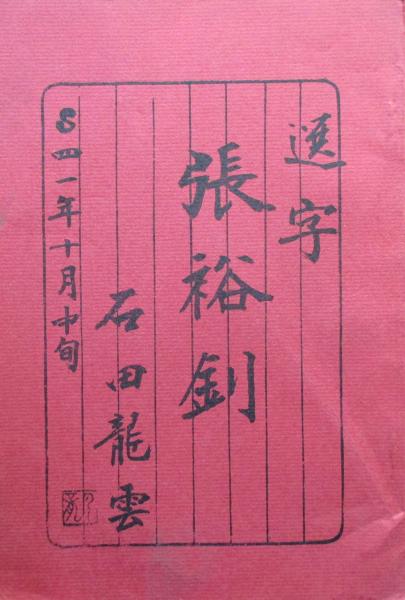 選字
張裕釗
石田龍雲
S四一年十月中旬